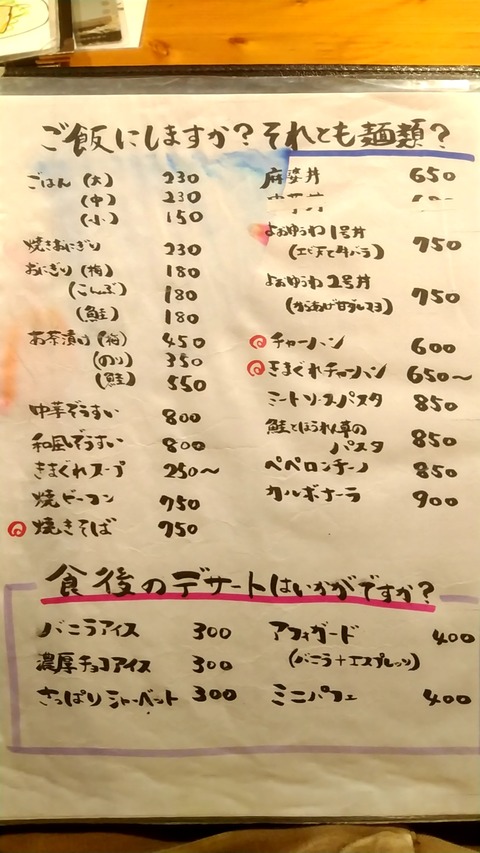 ご飯にしますか？それとも麺類？
ごはん (大) 230
(中) 230
(小) 150
焼きおにぎり 230
おにぎり (梅) 180
(こんぶ) 180
(鮭) 180
お茶漬け (梅) 450
(のり) 350
(鮭) 550
中華ぞうすい 800
和風ぞうすい 800
きまぐれスープ 250〜
焼ビーフン 750
焼きそば 750
麻婆丼 650
1号丼 750
(エビ天と牛バラ)
2号丼 750
チャーハン 600
きまぐれチャーハン 650〜
ミートソースパスタ 850
鮭とほうれん草の
パスタ 850
ペペロンチーノ 850
カルボナーラ 900
食後のデザートはいかがですか？
バニラアイス 300
濃厚チョコアイス 300
さっぱりシャーベット 300
アフォガード 400
(バニラ＋エスプレッソ)
ミニパフェ 400